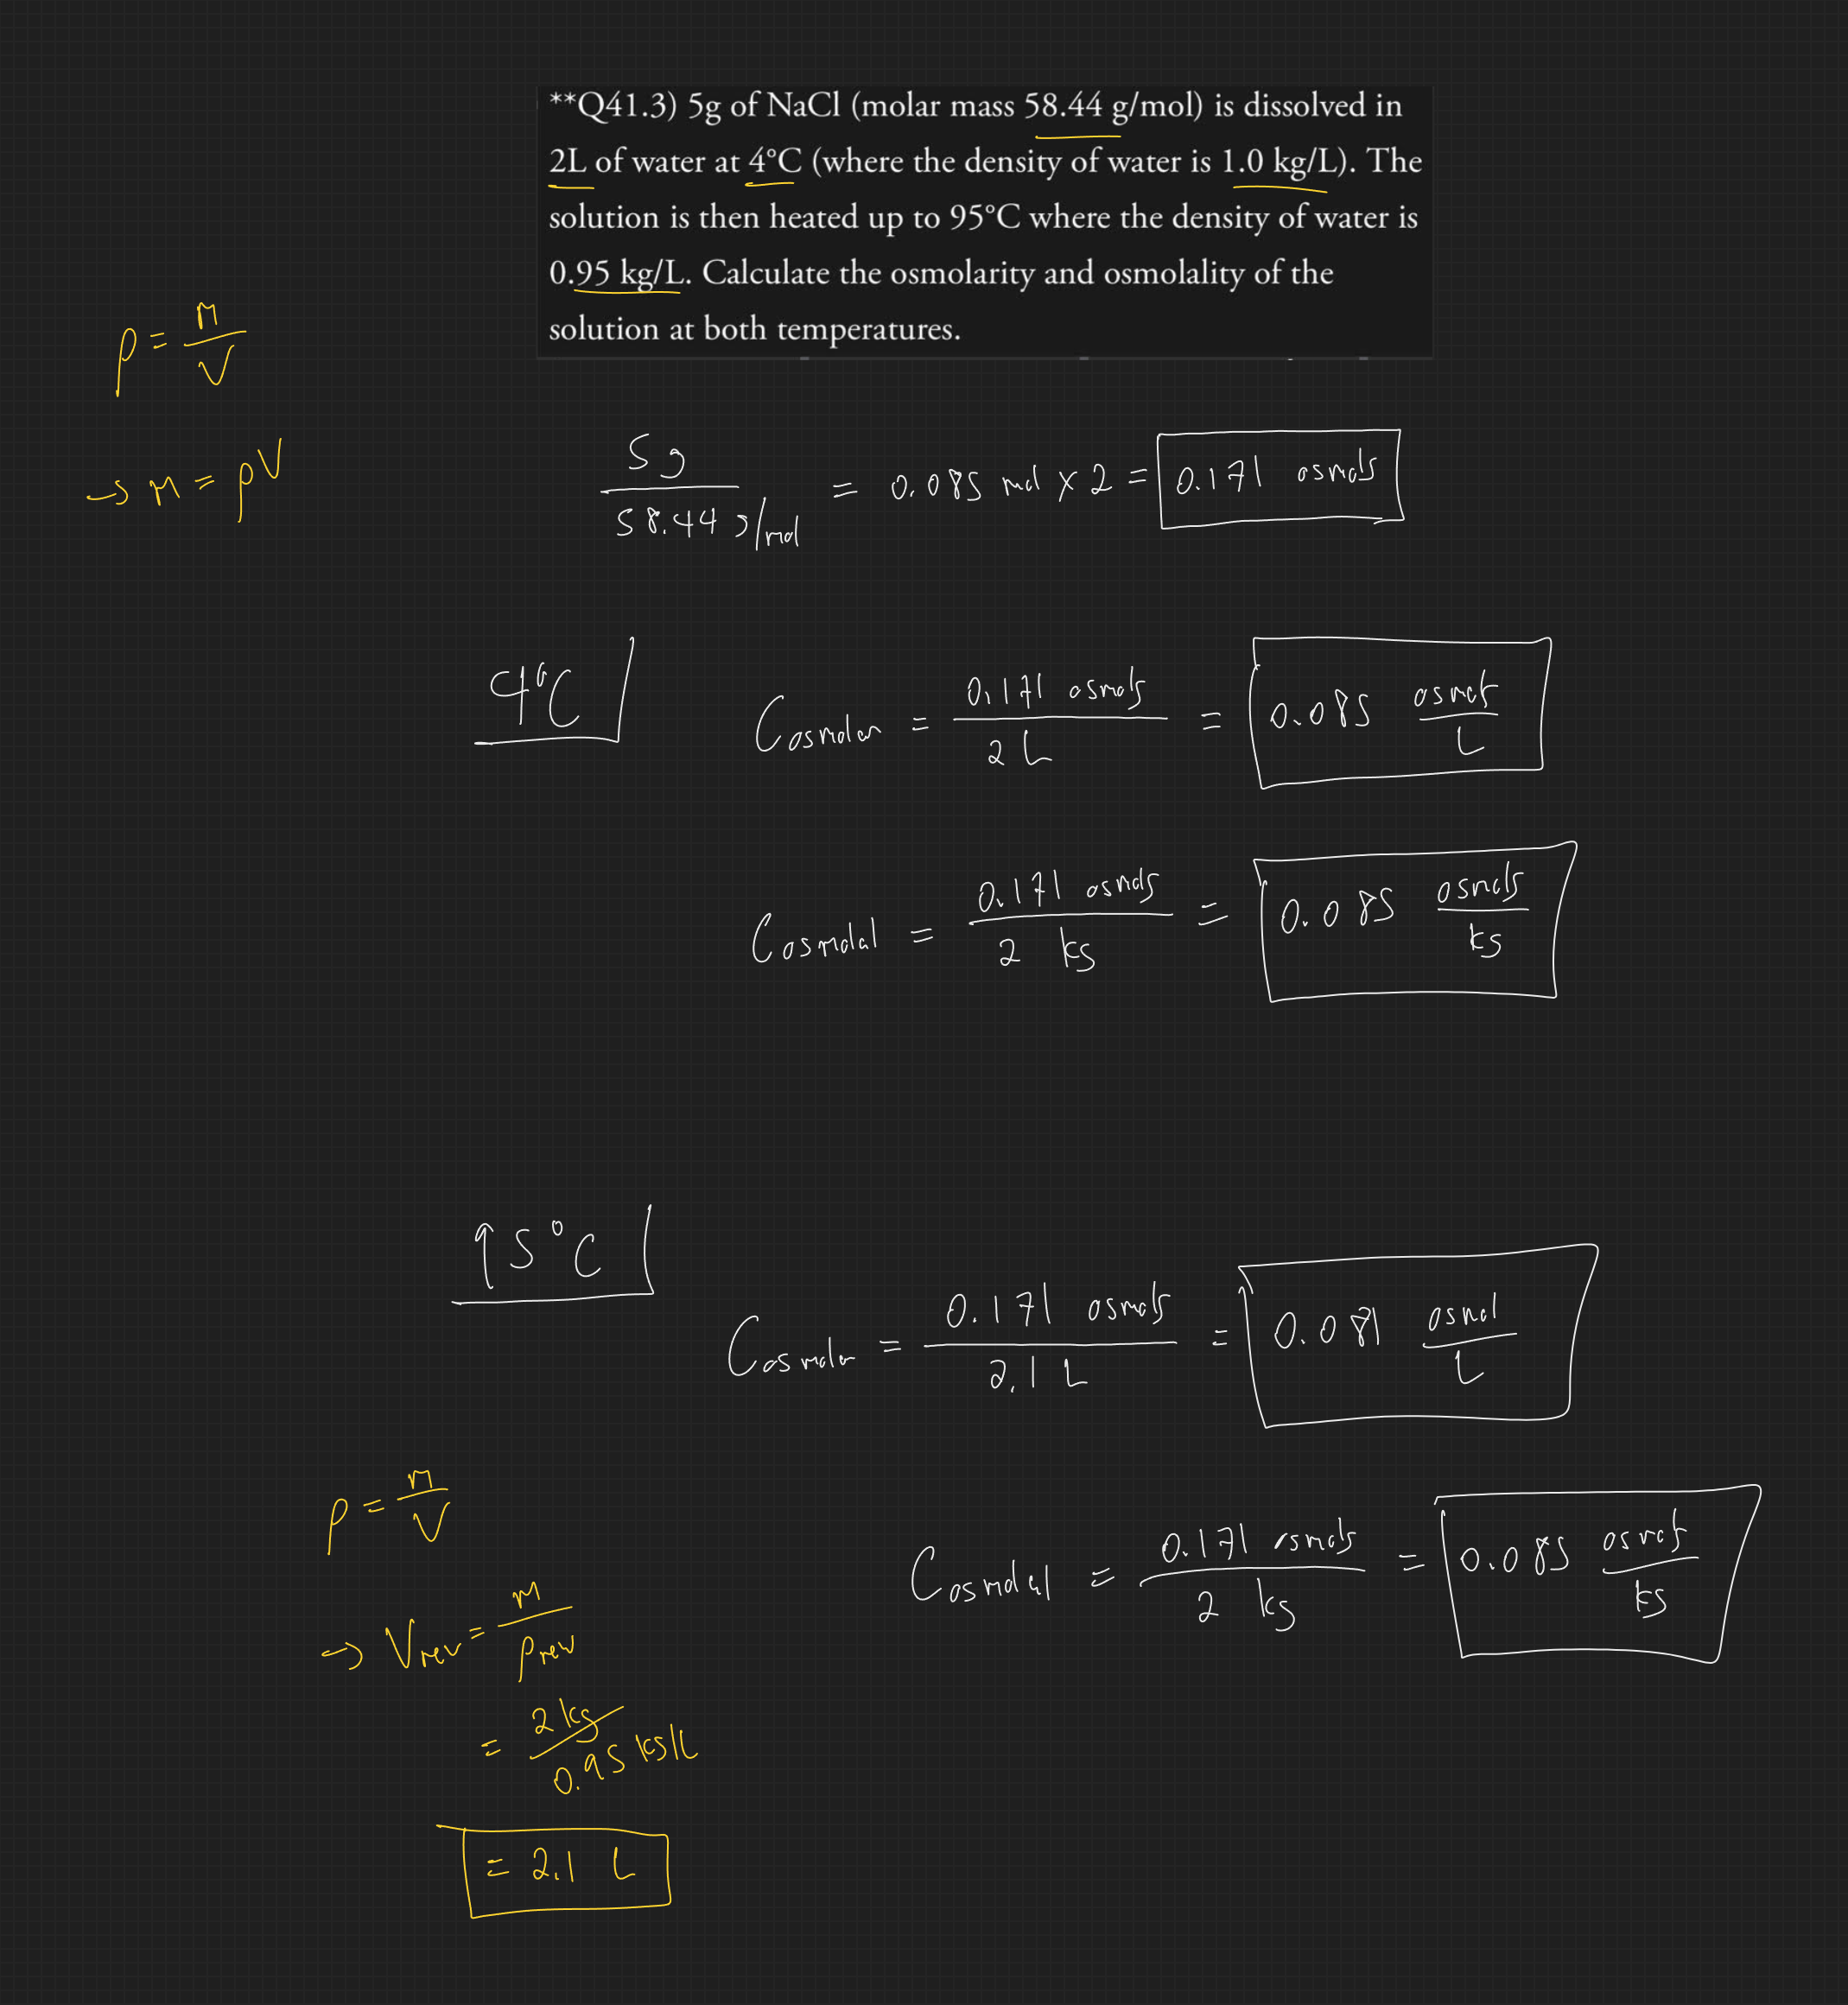 **Q41.3) 5g of NaCl (molar mass 58.44 g/mol) is dissolved in
2L of water at 4°C (where the density of water is 1.0 kg/L). The
solution is then heated up to 95°C where the density of water is
0.95 kg/L. Calculate the osmolarity and osmolality of the
solution at both temperatures.
ρ = m/V
→ m = ρV
5 g / 58.44 g/mol = 0.085 mol × 2 = 0.171 osmols
4°C
Cosmolar = 0.171 osmols / 2 L = 0.085 osmols / L
Cosmolal = 0.171 osmols / 2 kg = 0.085 osmols / kg
95°C
Cosmolar = 0.171 osmols / 2.1 L = 0.081 osmol / L
ρ = m/V
Cosmolal = 0.171 osmols / 2 kg = 0.085 osmols / kg
→ Vnew = m / ρnew
= 2 kg / 0.95 kg/L
= 2.1 L